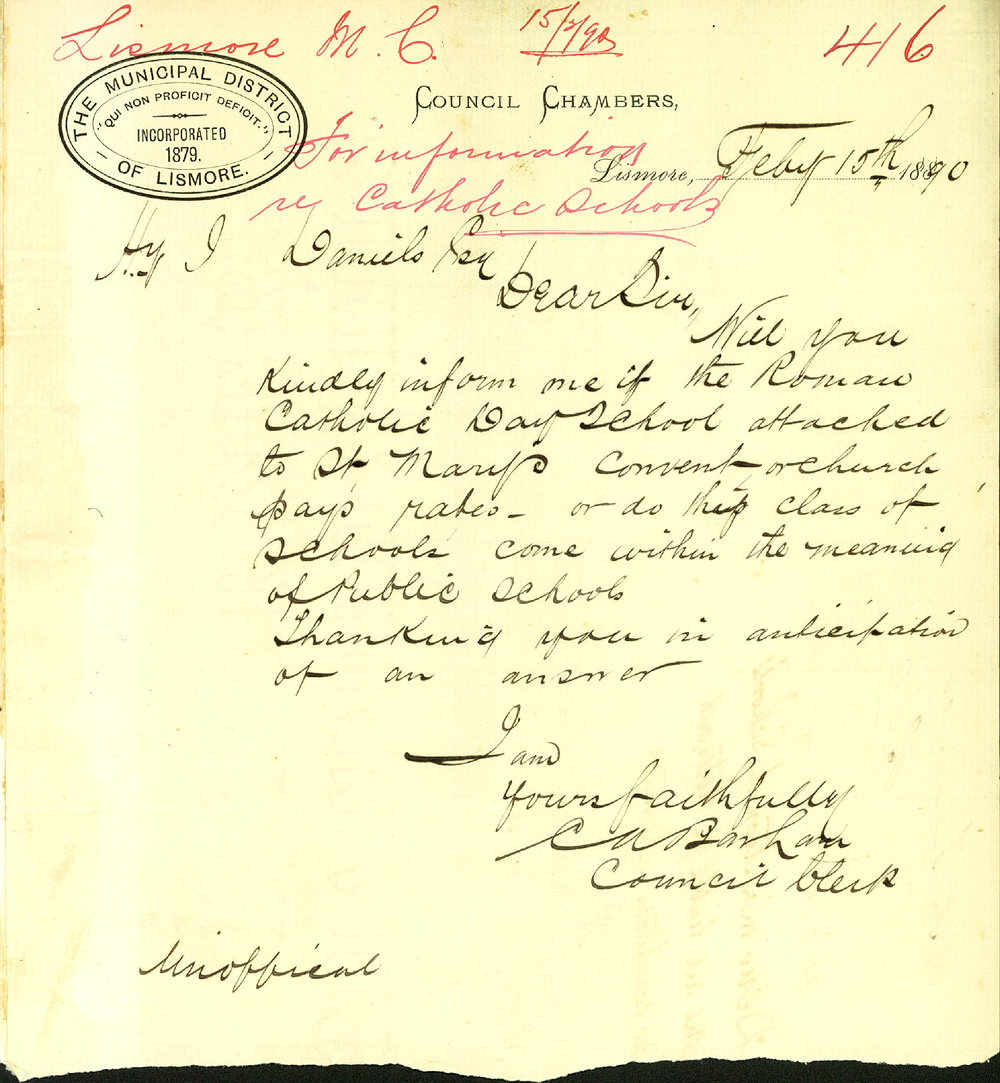 Lismore M. C. 15/2/90 416
THE MUNICIPAL DISTRICT
"QUI NON PROFICIT DEFICIT."
INCORPORATED
1879.
OF LISMORE.
COUNCIL CHAMBERS,
For information
Lismore, Feby 15th, 1890
re Catholic Schools
Hy J Daniels Esq
Dear Sir,
Will you
Kindly inform me if the Roman
Catholic Day School attached
to St Mary's Convent, or church
pays rates - or do this class of
schools come within the meaning
of Public Schools
Thanking you in anticipation
of an answer
I am
Yours faithfully
C A Barham
Council Clerk
Unoffical